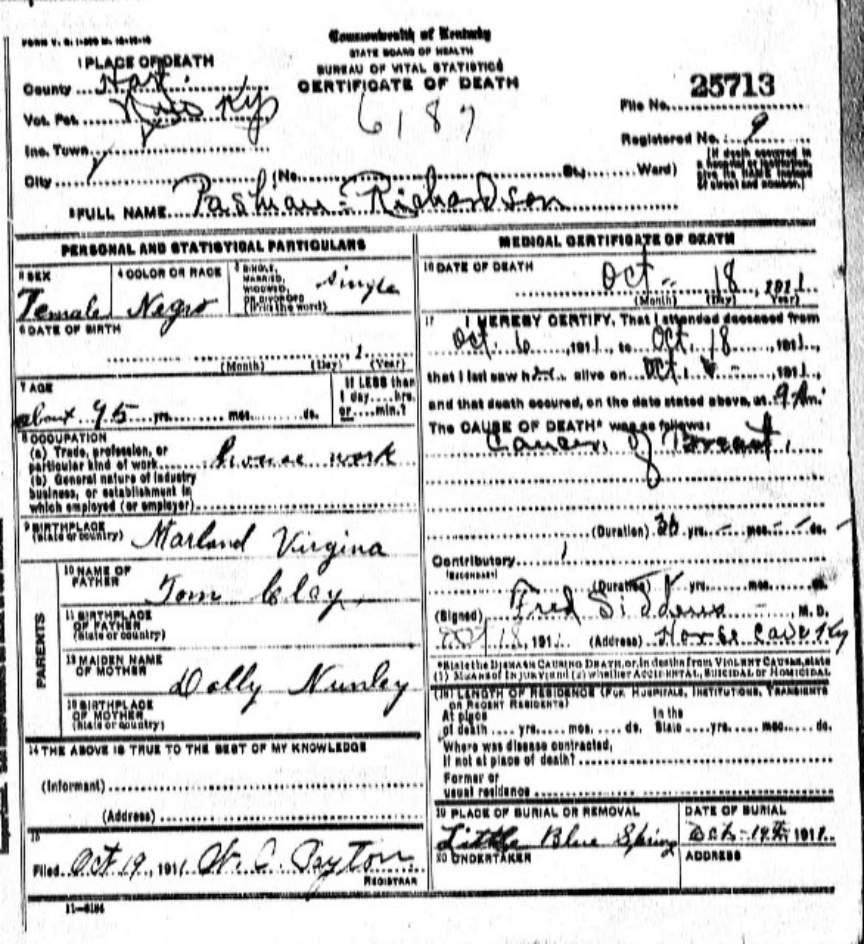 FORM V. S. 1-
Commonwealth of Kentucky
STATE BOARD OF HEALTH
BUREAU OF VITAL STATISTICS
CERTIFICATE OF DEATH
1 PLACE OF DEATH
County Hart.
Vot. Pct. Ky
Inc. Town
City (No. St., Ward)
6187
25713
File No.
Registered No. 9
[If death occurred in a hospital or institution, give its NAME instead of street and number.]
2 FULL NAME Pashian Richardson
PERSONAL AND STATISTICAL PARTICULARS
3 SEX
Female
4 COLOR OR RACE
Negro
5 SINGLE, MARRIED, WIDOWED, OR DIVORCED (Write the word)
single
6 DATE OF BIRTH
, 1
(Month) (Day) (Year)
7 AGE
about 95 yrs. mos. ds.
If LESS than 1 day....hrs. or....min.?
8 OCCUPATION
(a) Trade, profession, or particular kind of work house work
(b) General nature of industry business, or establishment in which employed (or employer)
9 BIRTHPLACE (State or country) Marland Virgina
PARENTS
10 NAME OF FATHER Tom Clay
11 BIRTHPLACE OF FATHER (State or country)
12 MAIDEN NAME OF MOTHER Dolly Nunley
13 BIRTHPLACE OF MOTHER (State or country)
14 THE ABOVE IS TRUE TO THE BEST OF MY KNOWLEDGE
(Informant)
(Address)
15
Filed Oct 19, 1911 W. C. Payton
REGISTRAR
11-6184
MEDICAL CERTIFICATE OF DEATH
16 DATE OF DEATH
Oct 18, 1911
(Month) (Day) Year
17 I HEREBY CERTIFY, That I attended deceased from
Oct. 6, 1911, to Oct. 18, 1911,
that I last saw her alive on Oct. 1911,
and that death occured, on the date stated above, at 9 A m.
The CAUSE OF DEATH* was as follows:
Cancer of Breast.
(Duration) yrs. - mos. - ds.
Contributory
(Secondary)
(Duration) yrs. mos. ds.
(Signed) Fred Siddens M. D.
Oct 18, 191 (Address) Horse Cave Ky
*State the DISEASE CAUSING DEATH, or, in deaths from VIOLENT CAUSES, state
(1) MEANS OF INJURY; and (2) whether ACCIDENTAL, SUICIDAL OR HOMICIDAL
(18) LENGTH OF RESIDENCE (FOR HOSPITALS, INSTITUTIONS, TRANSIENTS OR RECENT RESIDENTS)
At place of death .... yrs. .... mos. .... ds. In the State .... yrs. .... mos. .... ds.
Where was disease contracted, If not at place of death?
Former or usual residence
19 PLACE OF BURIAL OR REMOVAL
Little Blue Spring
DATE OF BURIAL
Oct 19th, 1911
20 UNDERTAKER
ADDRESS